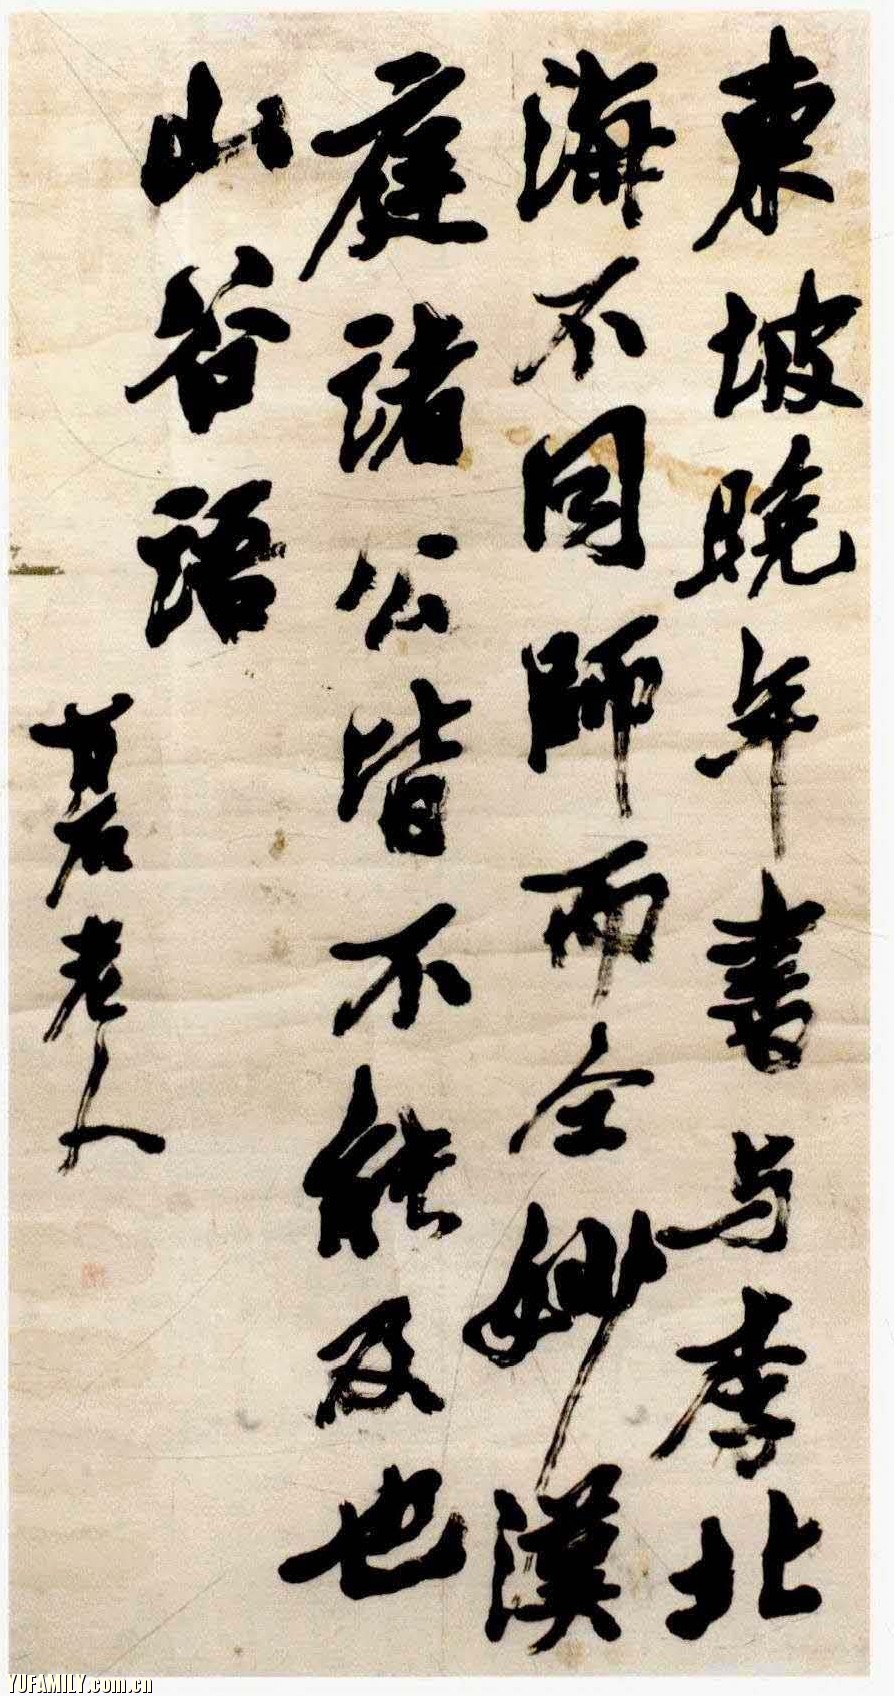 東坡晚年書与李北
海不同師而仝妙漢
庭諸公皆不能及也
山谷語
石老人
YUFAMILY.com.cn